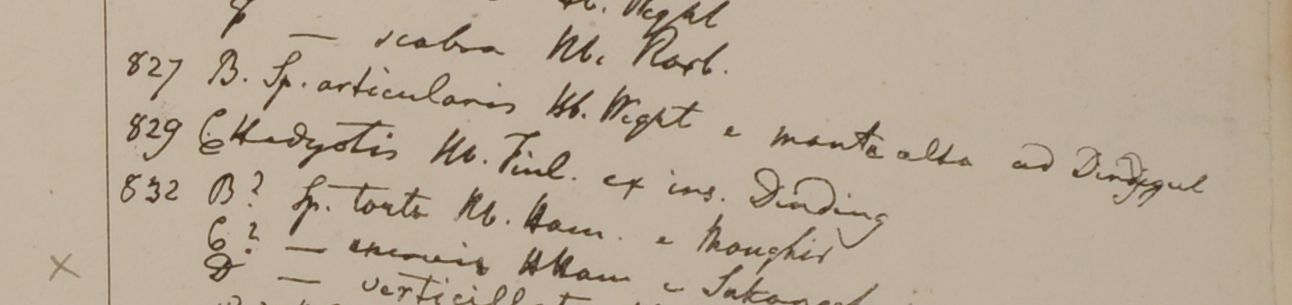 Hb. Wight
— scabra Hb. Roxb.
827 B. Sp. articularis Hb. Wight e monte alto ad Dindygul
829 C Hedyotis Hb. Finl. ex ins. Dinding
832 B? Sp. torta Hb. Ham. e Monghir
C? — Hb Ham e
D — verticillat